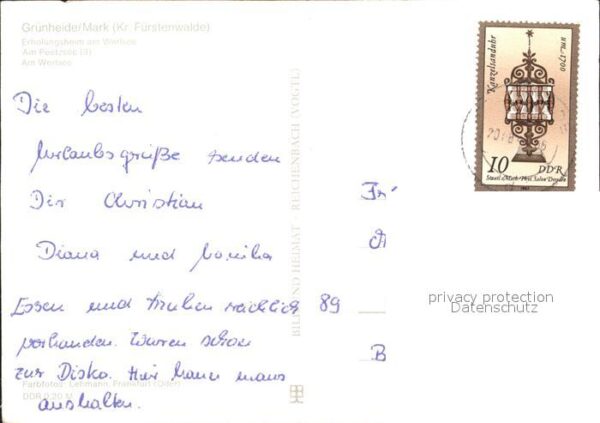 Grünheide/Mark (Kr. Fürstenwalde)
Erholungsheim am Werlsee
Am Peetzsee (3)
Am Werlsee
Die besten
Urlaubsgrüße senden
Dir Christian
Diana und Monika
Essen und Trinken reichlich
vorhanden. Waren schon
zur Disko. Hier kann mans
aushalten.
Farbfotos: Lehmann, Frankfurt (Oder)
DDR 0,20 M
BILD UND HEIMAT REICHENBACH (VOGTL)
Kanzelsanduhr
um 1700
10 DDR
Staatl. Math.-Phys. Salon Dresden
1983
Fr
A
89
B
privacy protection
Datenschutz